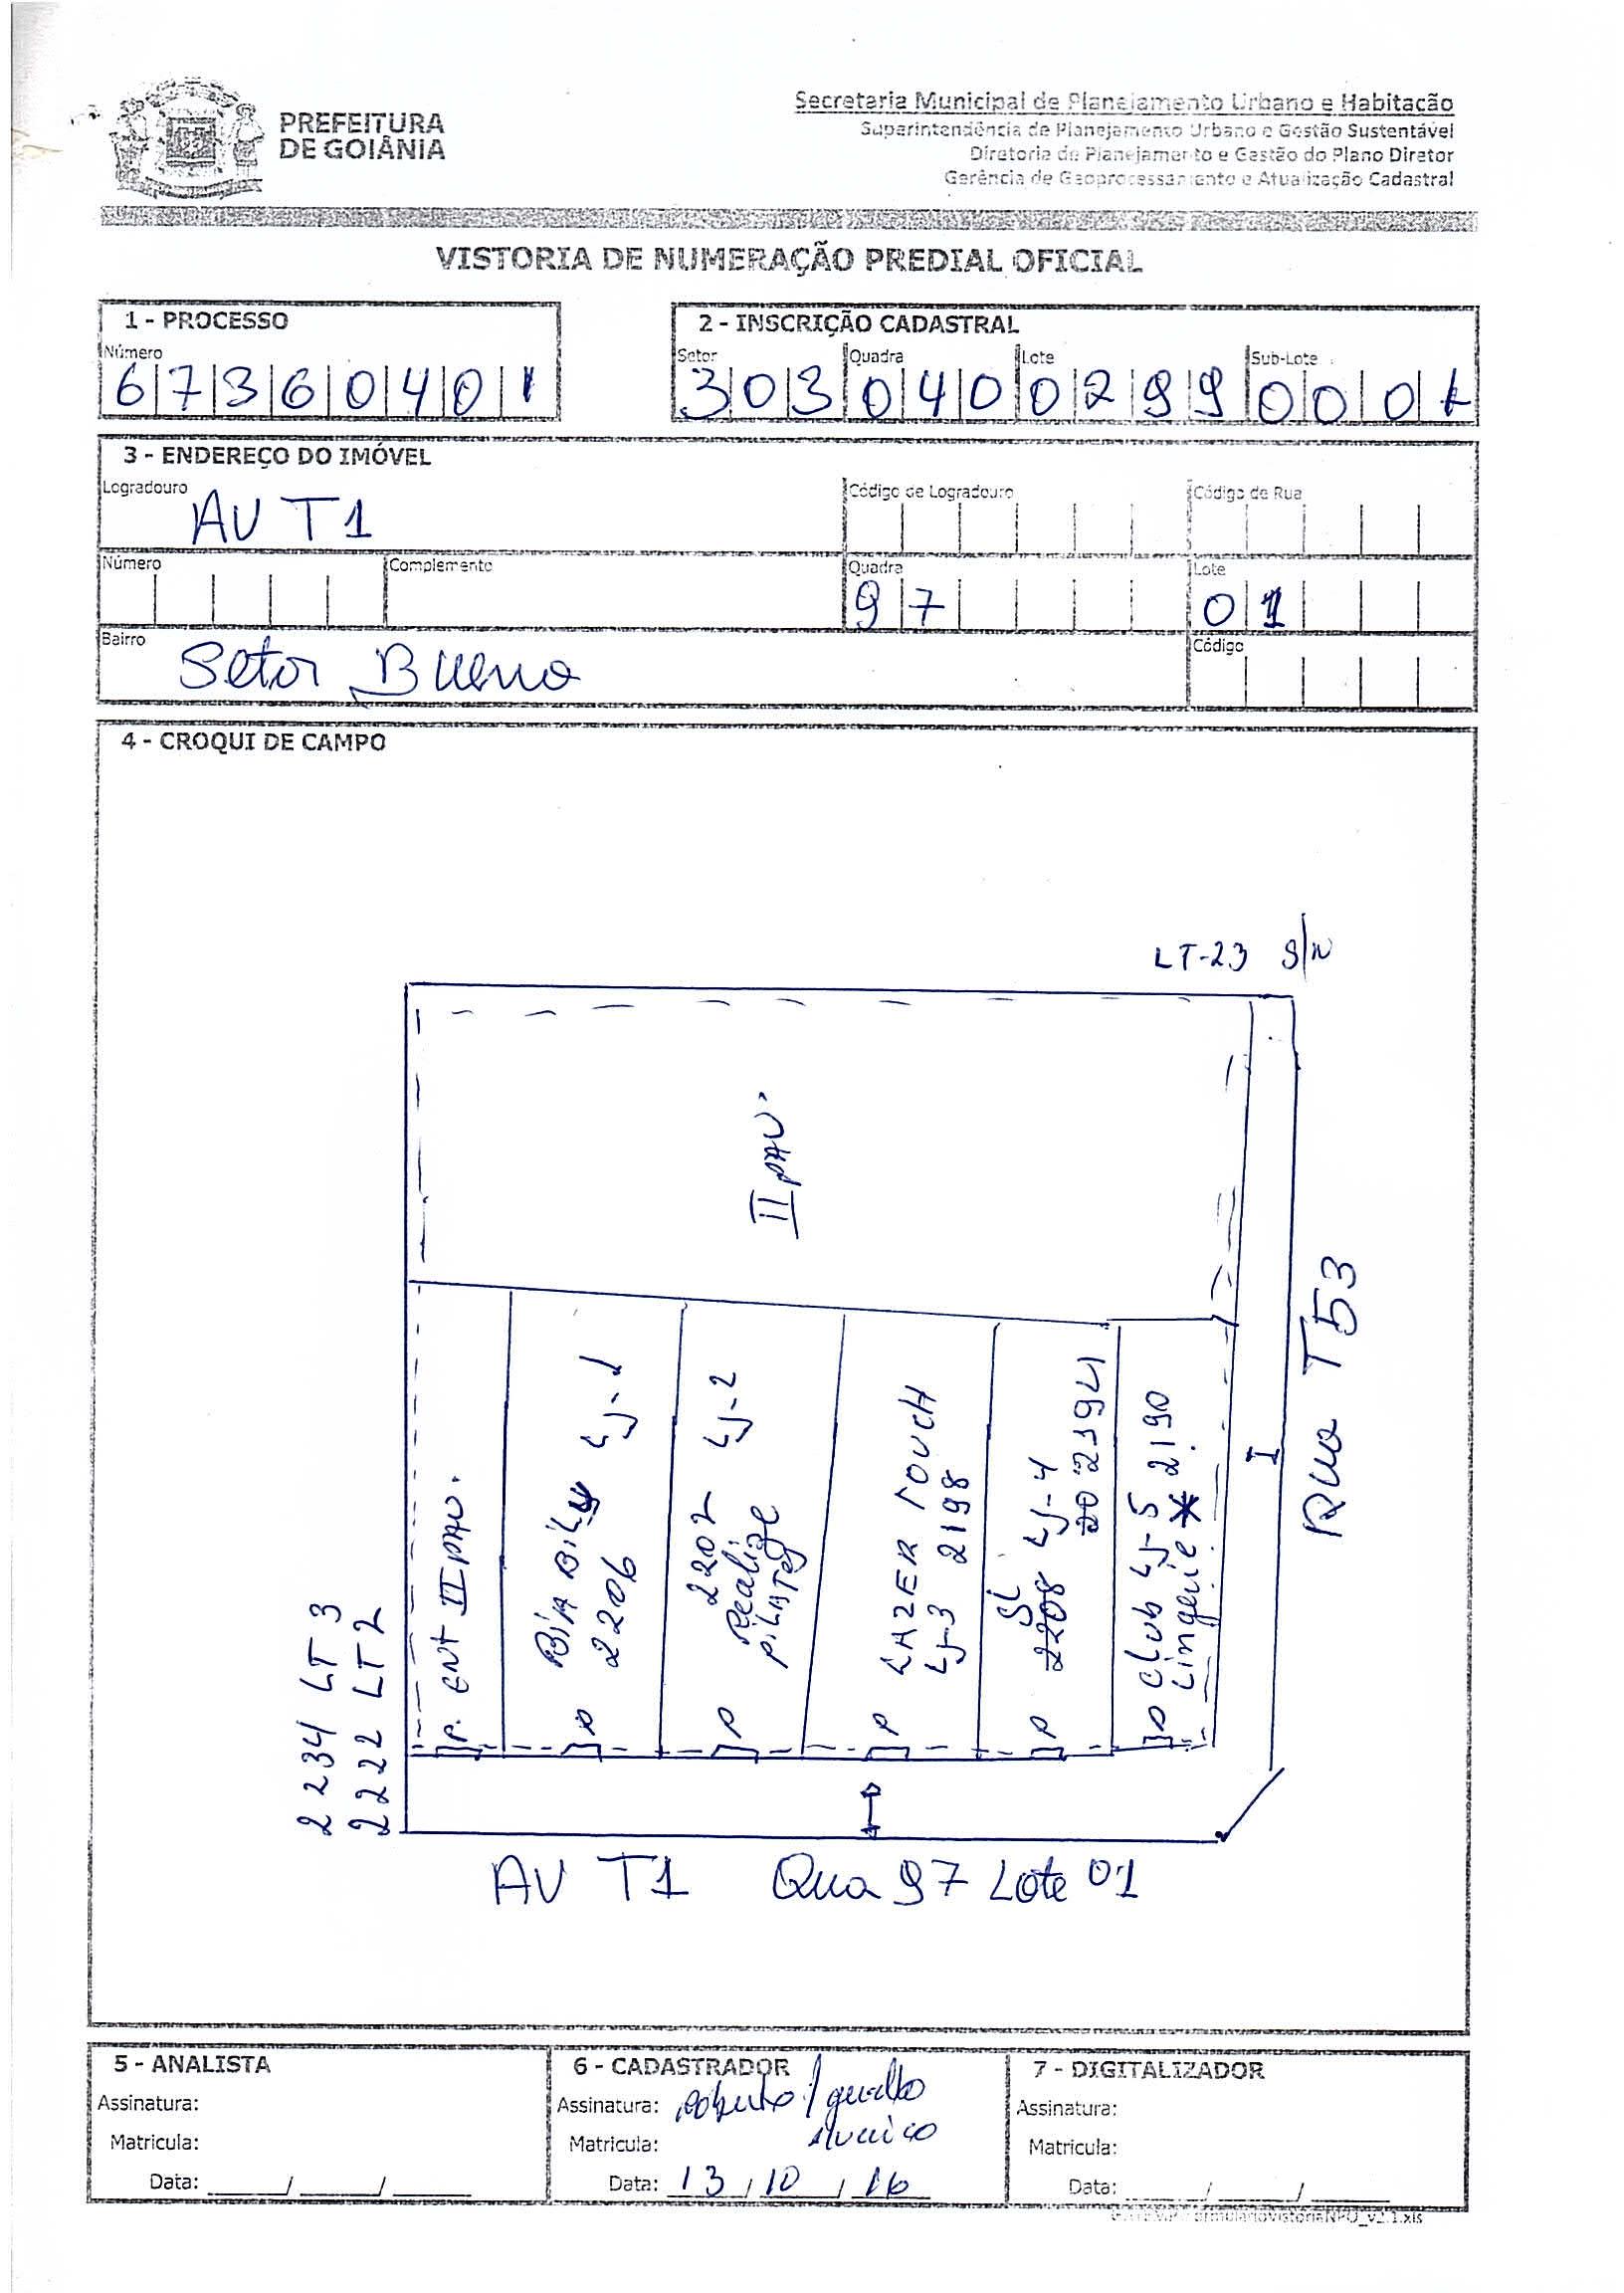 PREFEITURA
DE GOIÂNIA
Secretaria Municipal de Planejamento Urbano e Habitação
Superintendência de Planejamento Urbano e Gestão Sustentável
Diretoria de Planejamento e Gestão do Plano Diretor
Gerência de Geoprocessamento e Atualização Cadastral
VISTORIA DE NUMERAÇÃO PREDIAL OFICIAL
1 - PROCESSO
Número
6 7 3 6 0 4 0 1
2 - INSCRIÇÃO CADASTRAL
Setor Quadra Lote Sub-Lote
3 0 3 0 4 0 0 2 9 9 0 0 0
3 - ENDEREÇO DO IMÓVEL
Logradouro Código de Logradouro Código de Rua
AV T1
Número Complemento Quadra Lote
97 01
Bairro Código
Setor Bueno
4 - CROQUI DE CAMPO
LT-23 S/N
II PAV.
Rua T53
2234 LT 3
2222 LT2
P. ENT II PAV.
P BIA BILU LJ-1
2206
P 2202 LJ-2
Realize
PILATES
P LAZER TOUCH
LJ-3 2198
P SL LJ-4
2208
2194
P Club LJ-5
Lingerie * 2190
I
I
AV T1 Qua 97 Lote 01
5 - ANALISTA
Assinatura:
Matricula:
Data: ____/____/____
6 - CADASTRADOR
Assinatura: Roberto
Matricula:
Data: 13/10/16
7 - DIGITALIZADOR
Assinatura:
Matricula:
Data: ____/____/____